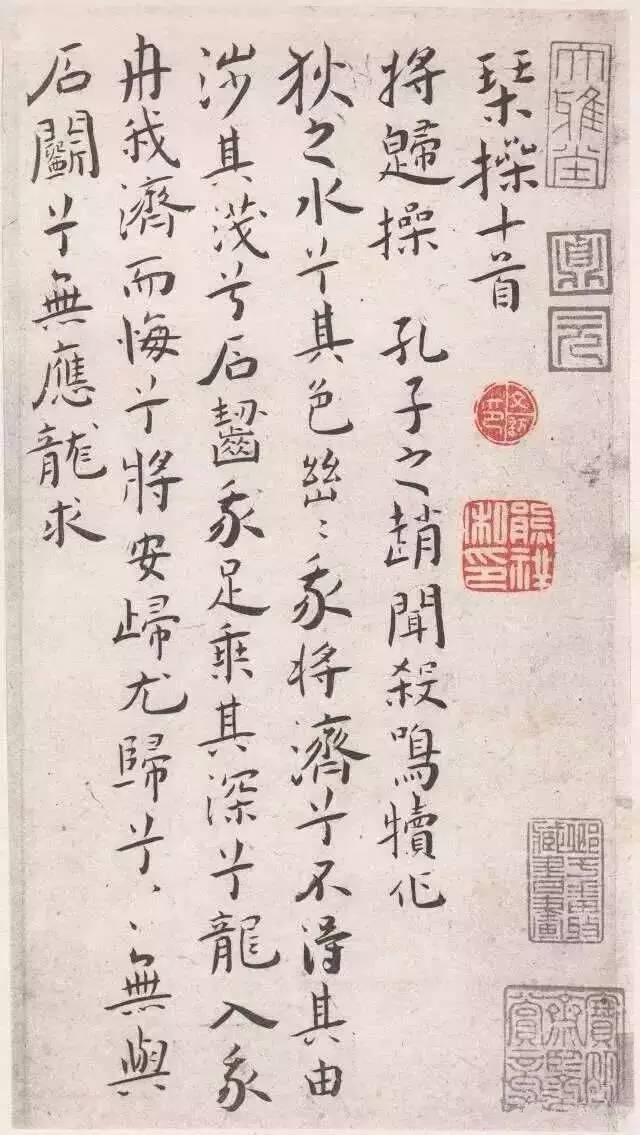 大雅堂
琹操十首
將歸操 孔子之趙聞殺鳴犢作
狄之水兮其色幽〻我將濟兮不得其由
涉其淺兮石齧我足乘其深兮龍入我
舟我濟而悔兮將安歸尤歸兮〻〻無與
石鬭兮無應龍求